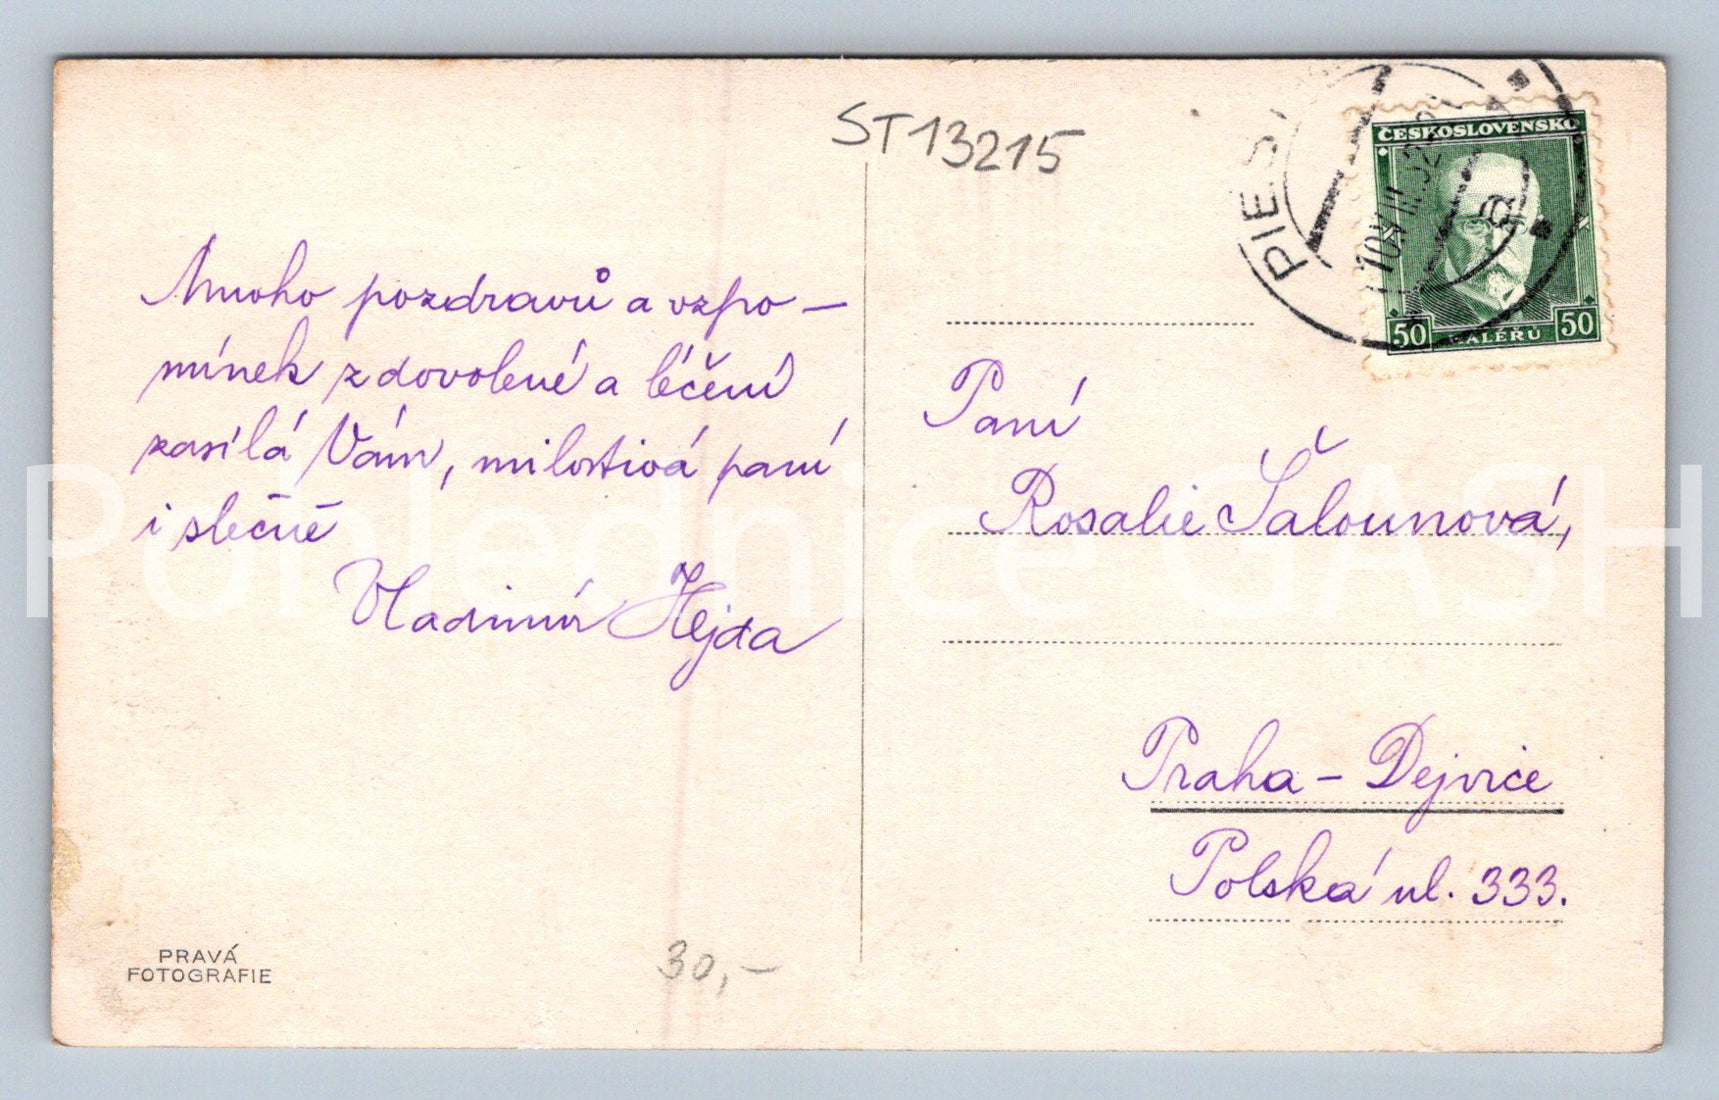 ST13215
Mnoho pozdravů a vzpo-
mínek z dovolené a léčení
zasílá Vám, milostivá paní
i slečně
Vladimír Hejda
PRAVÁ
FOTOGRAFIE
30,-
PIEŠ
10.VIII.32
ČESKOSLOVENSKO
50 HALÉŘŮ 50
Paní
Rosalie Šalounová,
Praha - Dejvice
Polská ul. 333.
Pohlednice GASH